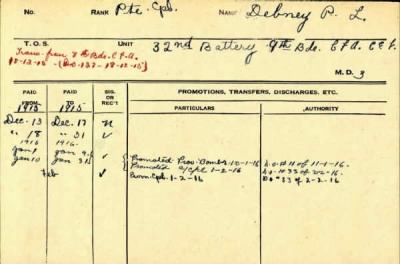 No. RANK Pte. Cpl. NAME Debney P. L.
T.O.S. UNIT 32nd Battery 9th Bde. C.F.A. C.E.F.
Trans. from 7th Bde. C.F.A.
18-12-15 (D.O. 133 - 18-12-15)
M.D. 3
PAID FROM PAID TO SIG. OR REC'T PROMOTIONS, TRANSFERS, DISCHARGES, ETC.
PARTICULARS AUTHORITY
1915 1915
Dec. 13 Dec. 17 n
" 18 " 31 ✓
1916 1916
Jan 1 Jan 9
Jan 10 Jan 31 ✓ Promoted Prov. Bombr 10-1-16 D.O. # 11 of 11-1-16.
Promoted a/Cpl 1-2-16 D.O. # 33 of 2-2-16.
Feb ✓ Prom. Cpl. 1-2-16 Do # 33 of 2-2-16.